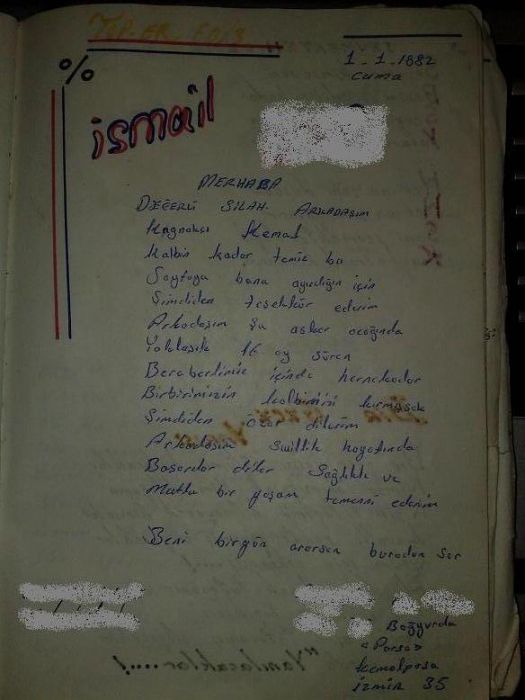 TOP. ER. 60/3
%
1-1-1982
cuma
ismail
MERHABA
DEĞERLİ SİLAH ARKADAŞIM
Kaynakçı Kemal
Kalbin kadar temiz bu
Sayfayı bana ayırdığın için
Şimdiden teşekkür ederim
Arkadaşım Şu asker ocağında
Yaklaşık 16 ay süren
Beraberlimiz içinde hernekadar
Birbirimizin kalbimizi kırmışsak
Şimdiden özür dilerim
Arkadaşım sivillik hayatında
Başarılar diler Sağlıklı ve
Mutlu bir yaşam temenni ederim
Beni birgün ararsan buradan Sor
Bağyurdu
«Parsa»
kemalpaşa
izmir 35